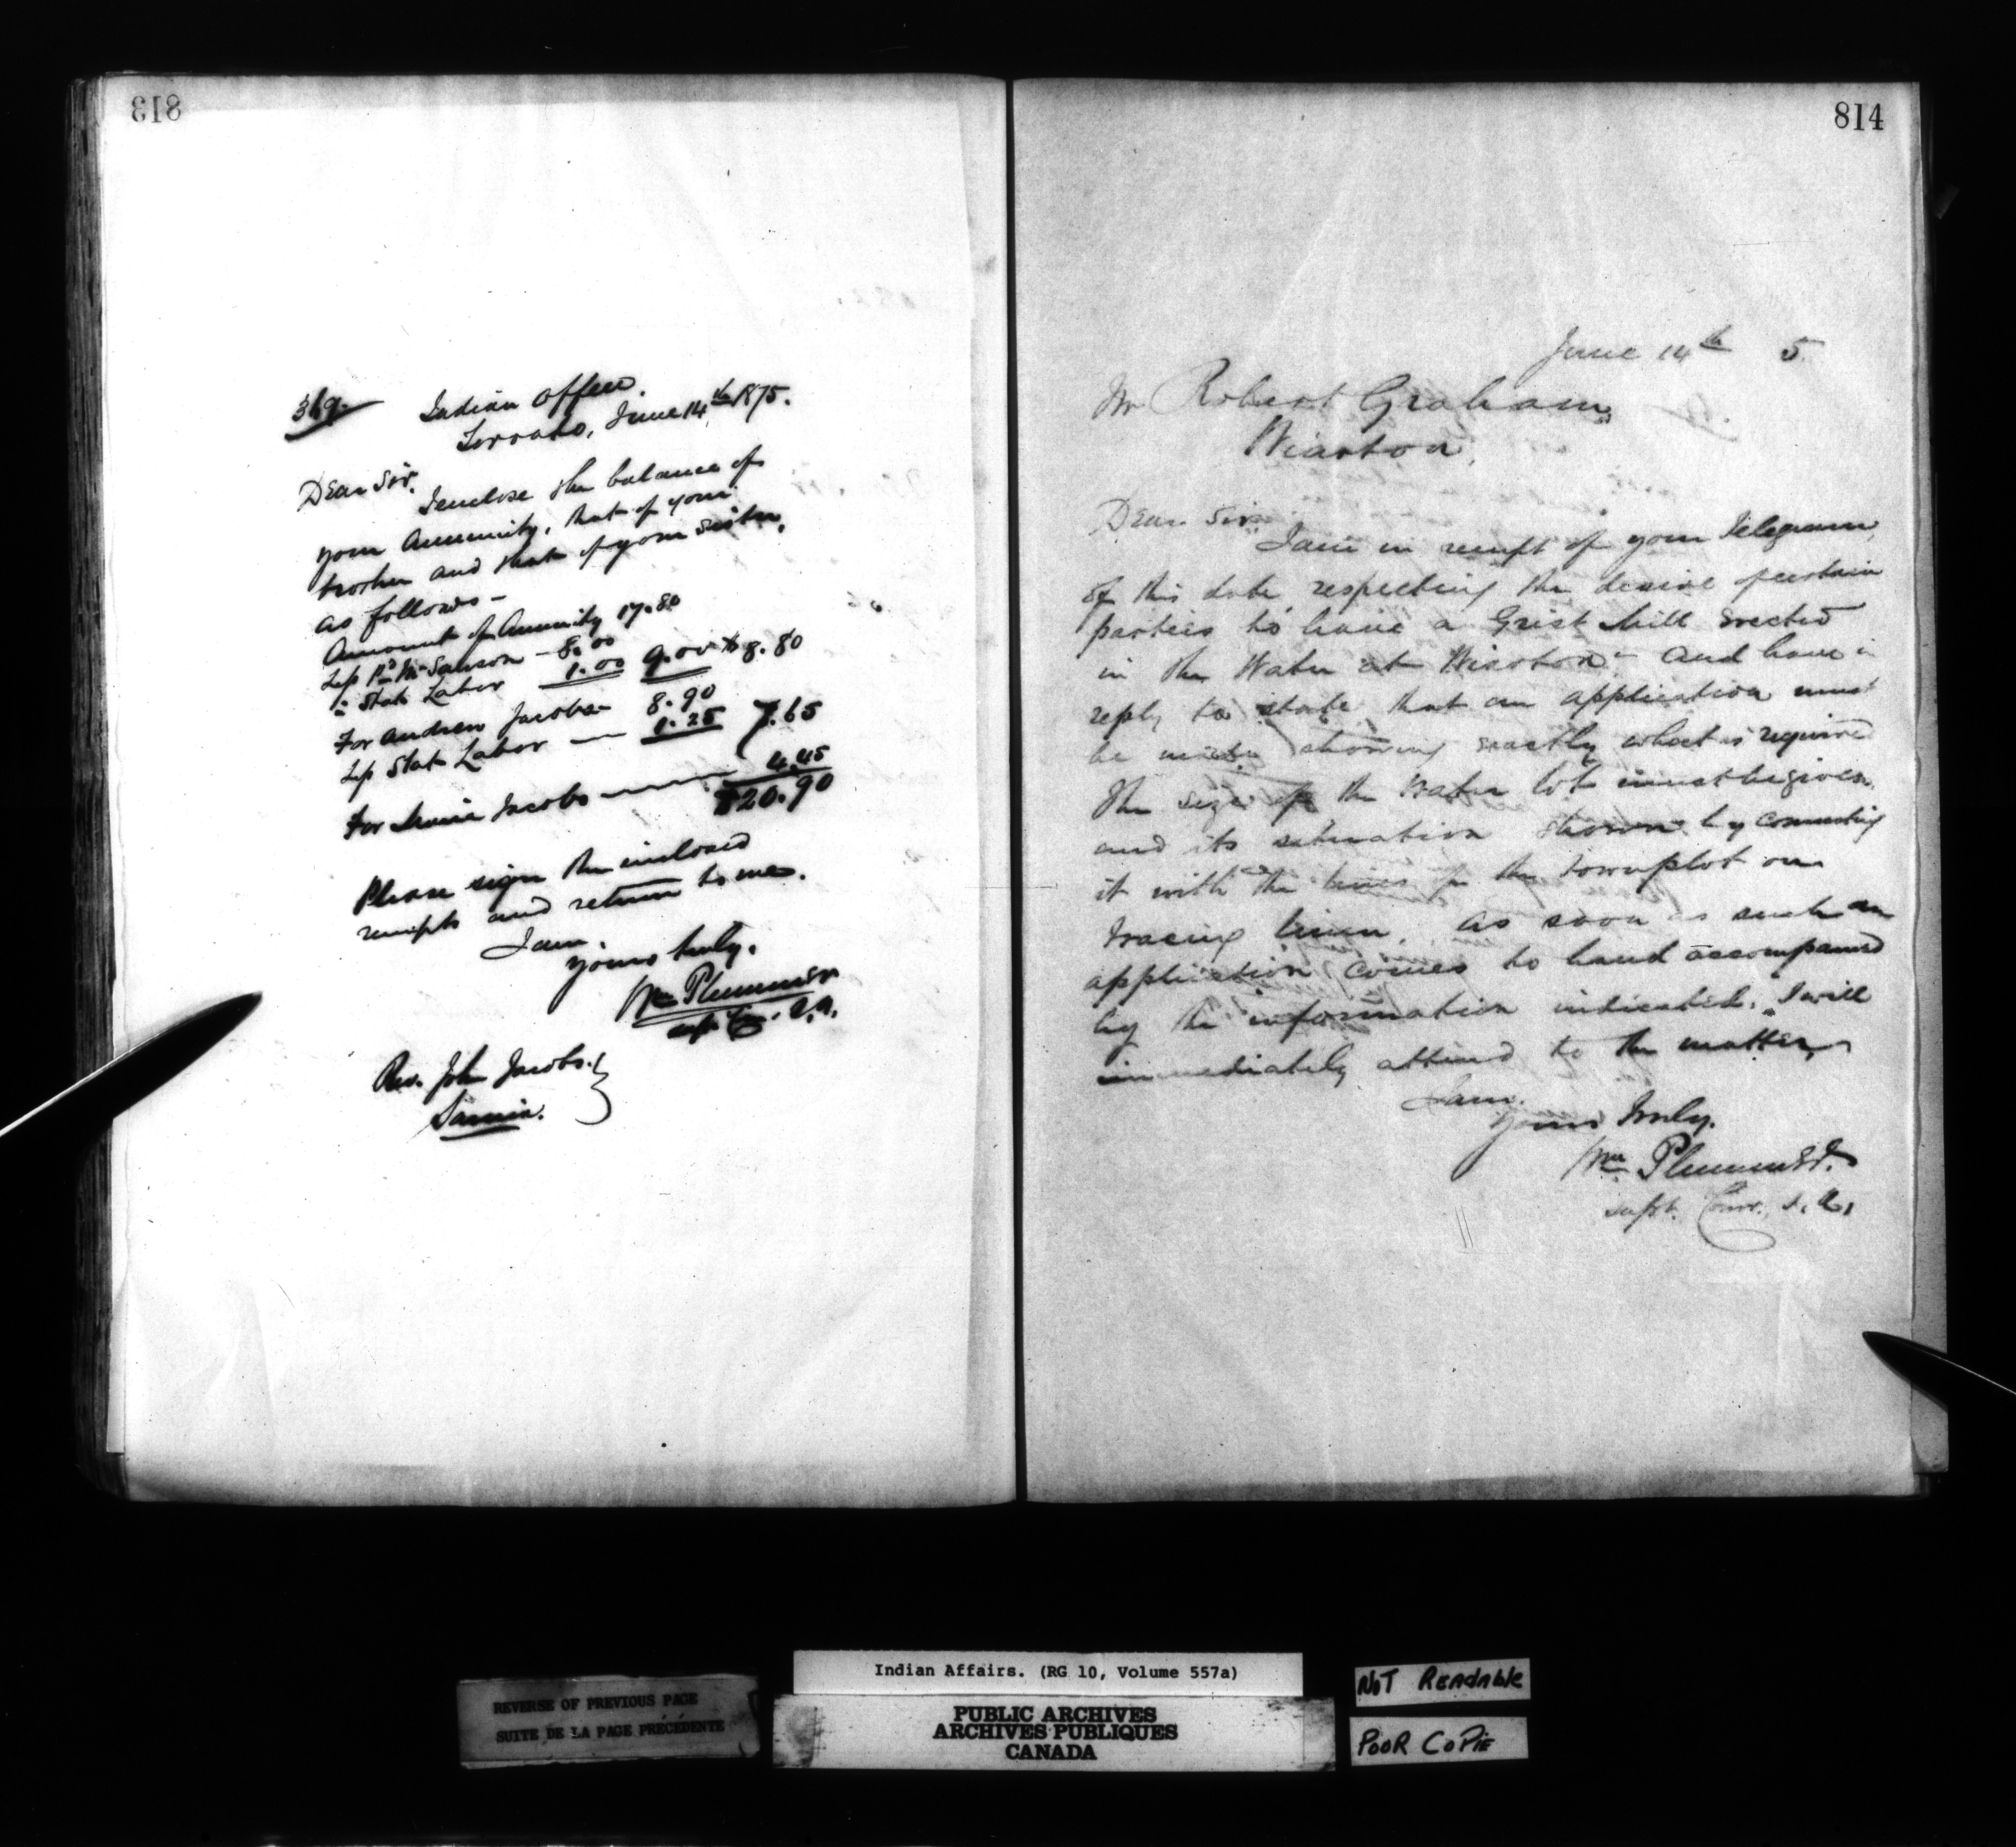 813
369.
Indian Office
Toronto, June 14th 1875.
Dear Sir.
I enclose the balance of
your Annuity, that of your
brother and that of your sister,
as follows -
Amount of Annuity 17.80
Less Pd Wm Sawson - 8.00
" Stat Labor 1.00 9.00 $8.80
For Andrew Jacobs - 8.90
Less Stat Labor — 1.25 7.65
For Jacobs 4.45
$20.90
Please sign the inclosed
receipts and return to me.
I am.
yours truly.
Wm Plummer
Supt Com. I.A.
Rev. John Jacobs.
Sarnia.
814
June 14th 5.
Mr Robert Graham,
Wiarton,
Dear Sir.
I am in receipt of your Telegram,
of this date respecting the desire of certain
parties to have a Grist Mill erected
in the Water at Wiarton - and have in
reply to state that an application must
be made showing exactly what is required
The size of the Water lot must be given,
and its situation shown by connecting
it with the lines of the townplot on
tracing linen, as soon as such an
application comes to hand accompanied
by the information indicated. I will
immediately attend to the matter,
I am.
Yours truly.
Wm Plummer.
Supt. Com. I.A.
REVERSE OF PREVIOUS PAGE
SUITE DE LA PAGE PRÉCÉDENTE
Indian Affairs. (RG 10, Volume 557a)
PUBLIC ARCHIVES
ARCHIVES PUBLIQUES
CANADA
NOT READABLE
POOR COPIE